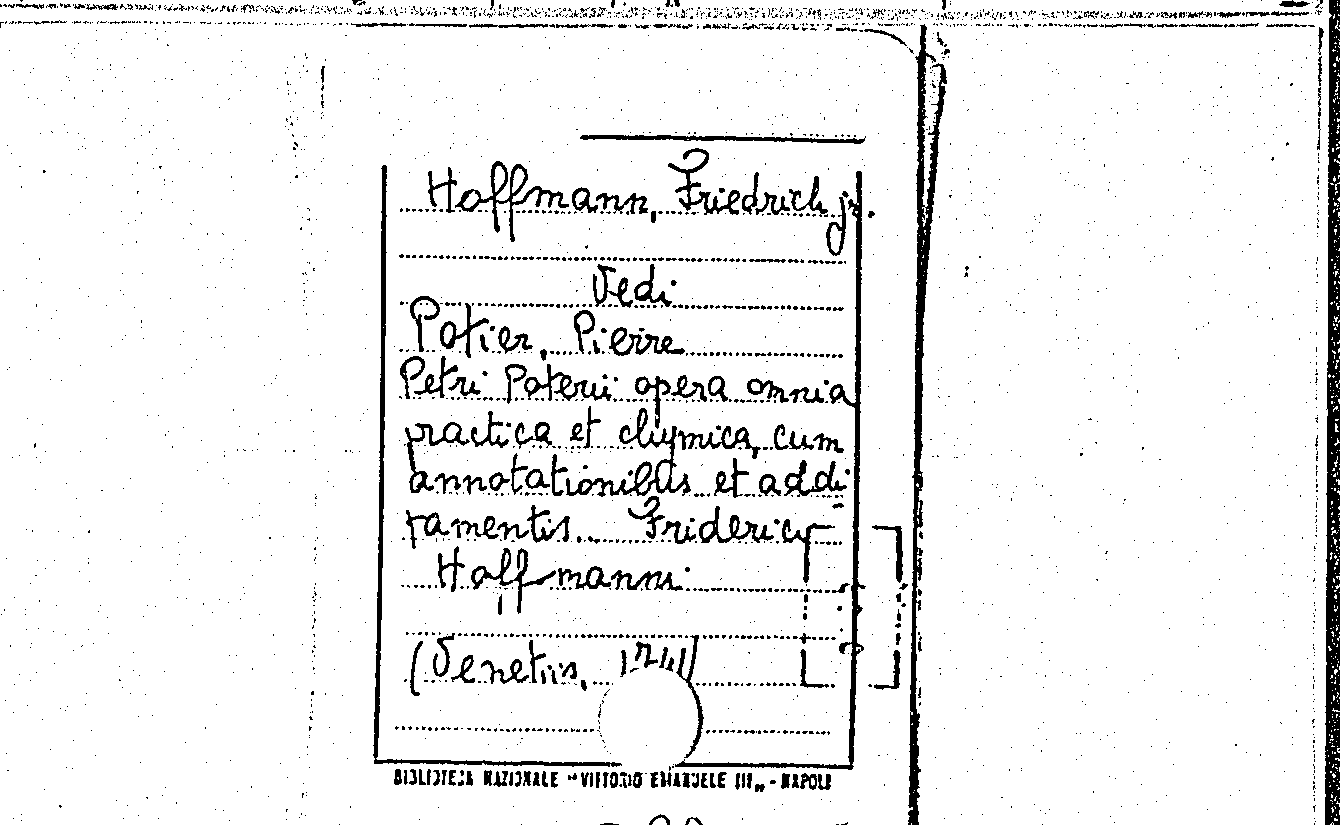 Hoffmann, Friedrich jr.
Vedi
Potier, Pierre
Petri Poterii opera omnia
practica et chymica, cum
annotationibus et addi-
tamentis... Friderici
Hoffmanni
(Venetiis, 1741)
BIBLIOTECA NAZIONALE "VITTORIO EMANUELE III" - NAPOLI